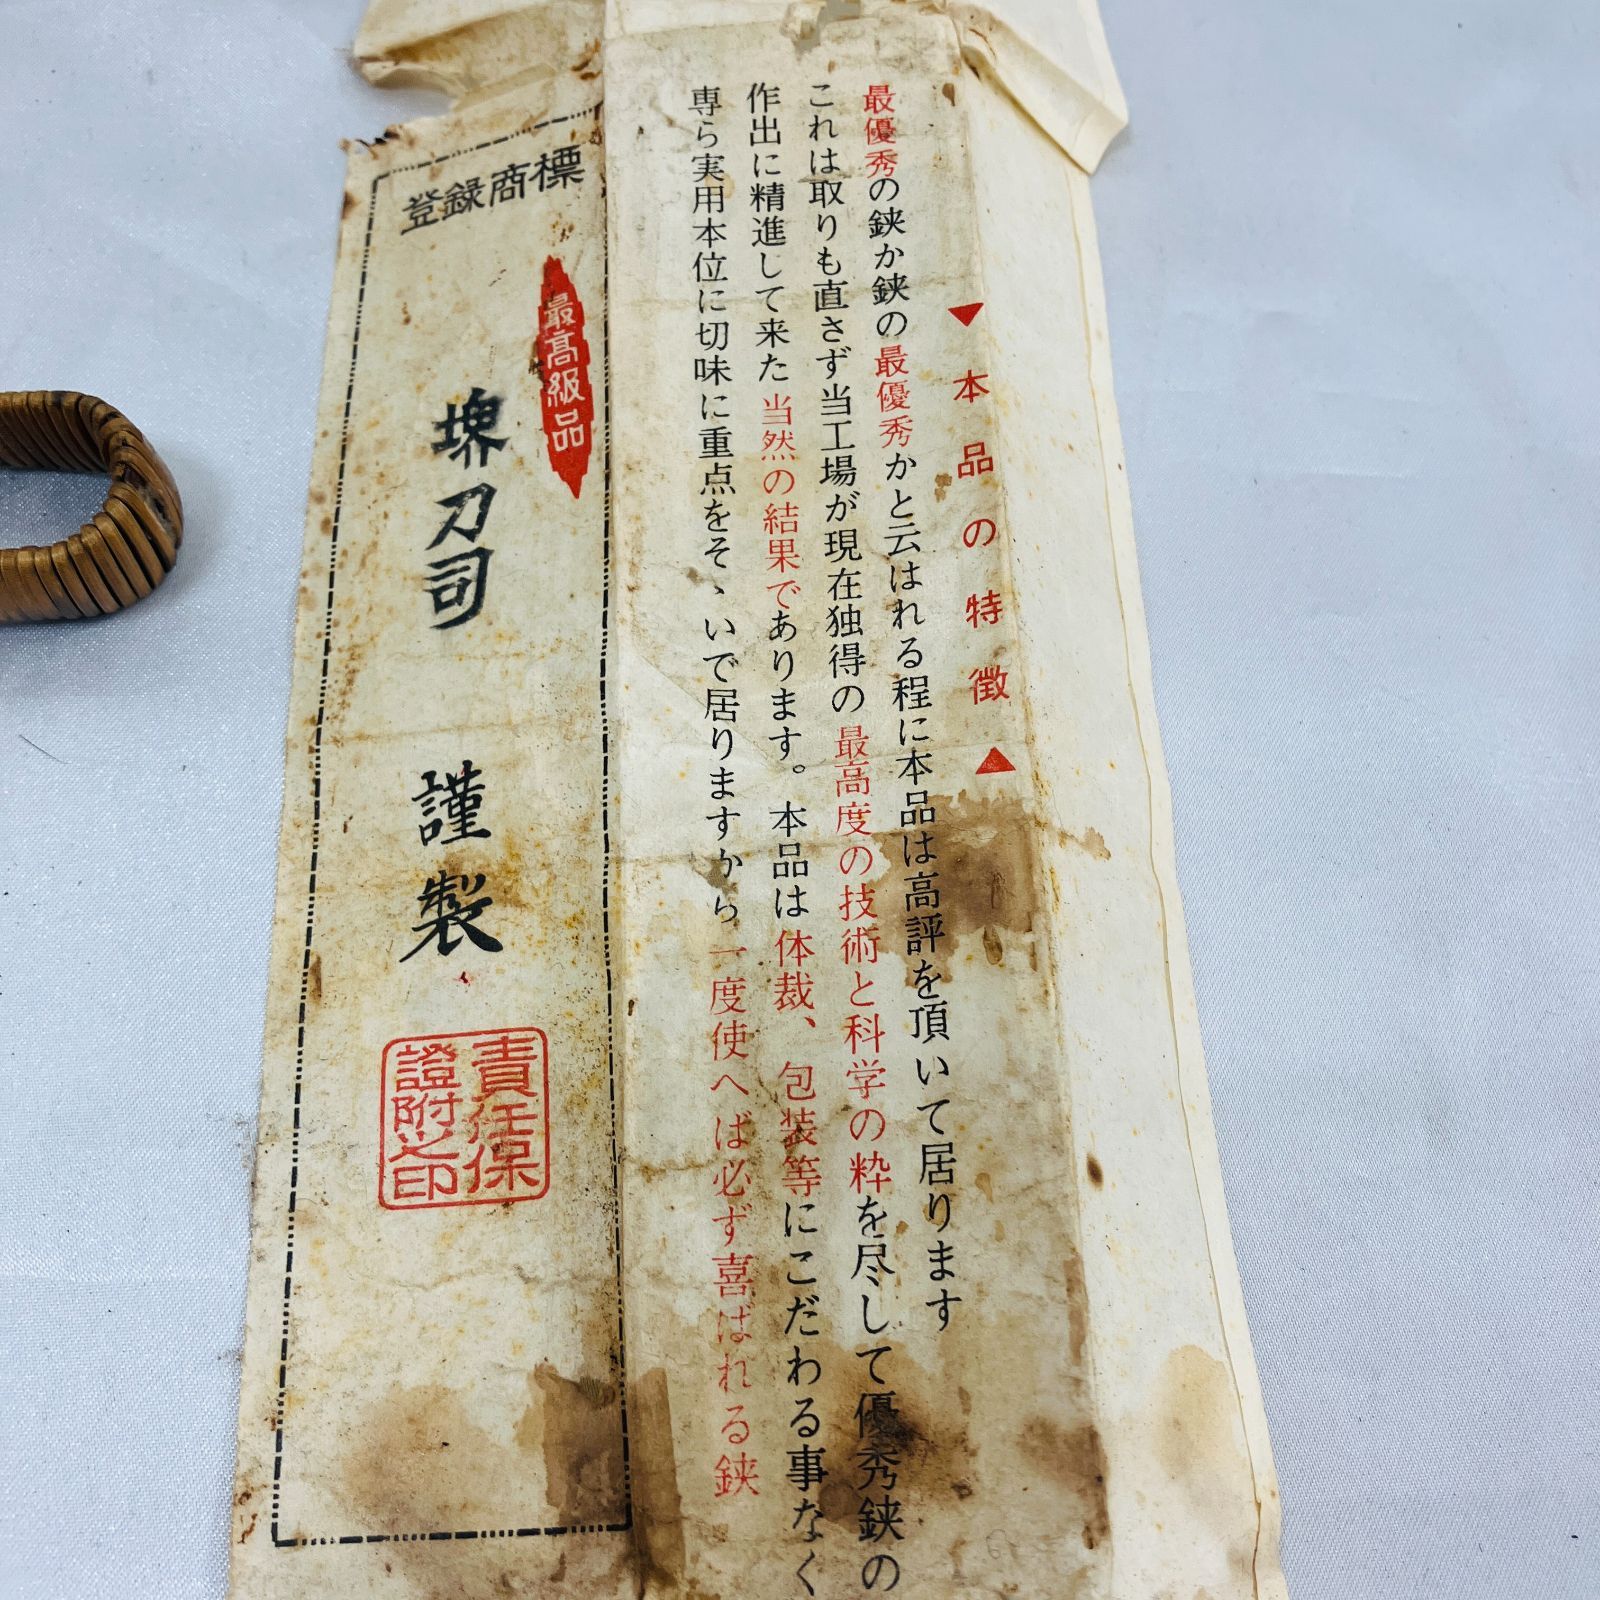 ▼本品の特徴▲
最優秀の鋏か鋏の最優秀かと云はれる程に本品は高評を頂いて居ります
これは取りも直さず当工場が現在独得の最高度の技術と科学の粋を尽して優秀鋏の
作出に精進して来た当然の結果であります。本品は体裁、包装等にこだわる事なく
専ら実用本位に切味に重点をそゝいで居りますから一度使へば必ず喜ばれる鋏
登録商標
最高級品
堺刀司 謹製
責任保
證附之印